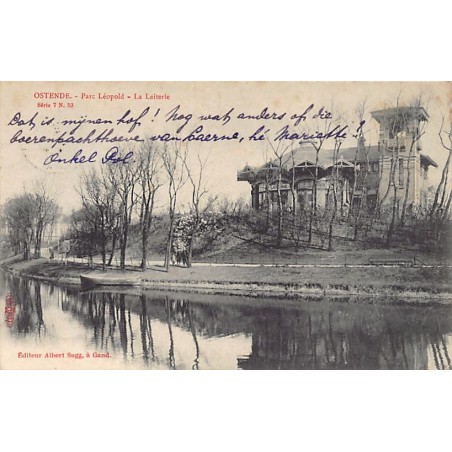 OSTENDE. - Parc Léopold - La Laiterie
Série 7 N. 53
Dat is mijnen hof! Nog wat anders op die
boerenpachthoeve van Caerne, hé Mariette!
Onkel Pol
Editeur Albert Sugg, à Gand.